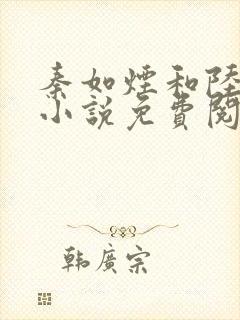 秦如煙和陸
小說免費閱
韓廣宗